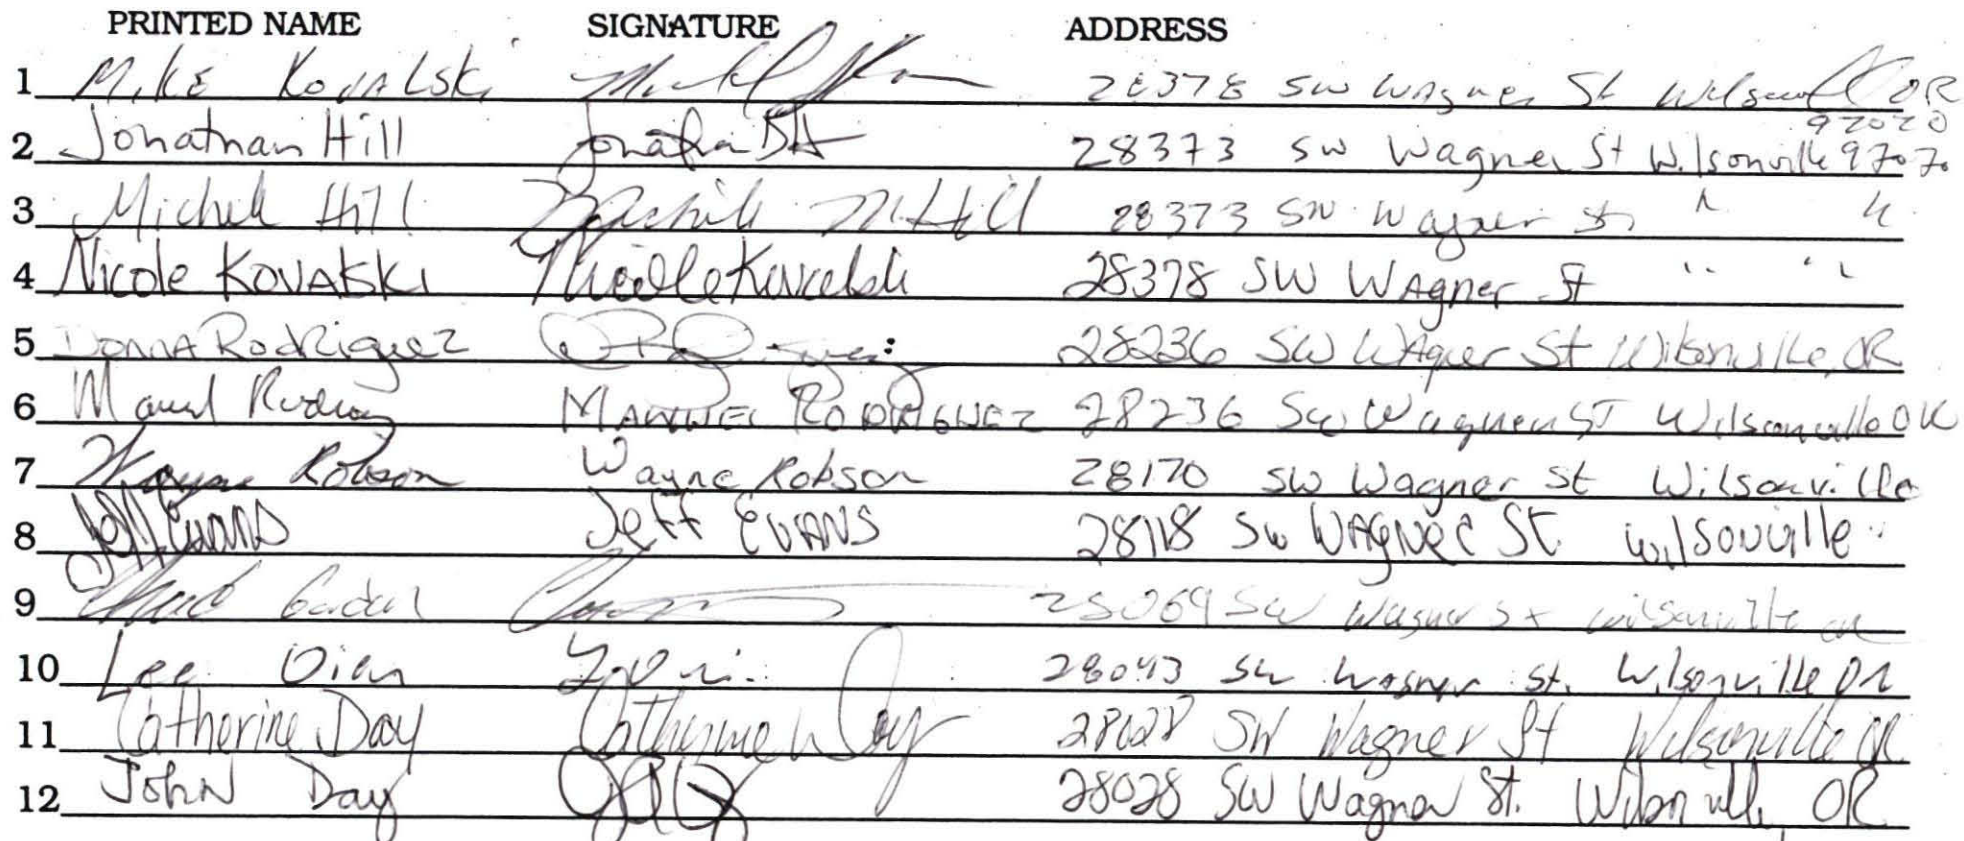 PRINTED NAME SIGNATURE ADDRESS
1 Mike Kovalski 28378 SW Wagner St Wilsonvill OR
97070
2 Jonathan Hill Jonathan 28373 SW Wagner St Wilsonville 97070
3 Michele Hill M Hill 28373 SW Wagner St " "
4 Nicole KOVALSKI Nicole Kovalski 28378 SW WAgner St " "
5 DonnA RodRiguez 28236 SW WAgner St Wilsonville, OR
6 Manuel MANUEL RODRIGUEZ 28236 SW Wagner ST Wilsonville OR
7 Wayne Robson Wayne Robson 28170 SW Wagner St Wilsonville
8 Jeff Evans Jeff EVANS 28118 SW WAGNER St. wilsonville
9 28069 SW Wagner St wilsonville or
10 Lee 28043 SW Wagner St. Wilsonville OR
11 Catherine Day Catherine Day 28028 SW Wagner St Wilsonville OR
12 JOHN Day 28028 SW Wagner St. Wilsonville, OR